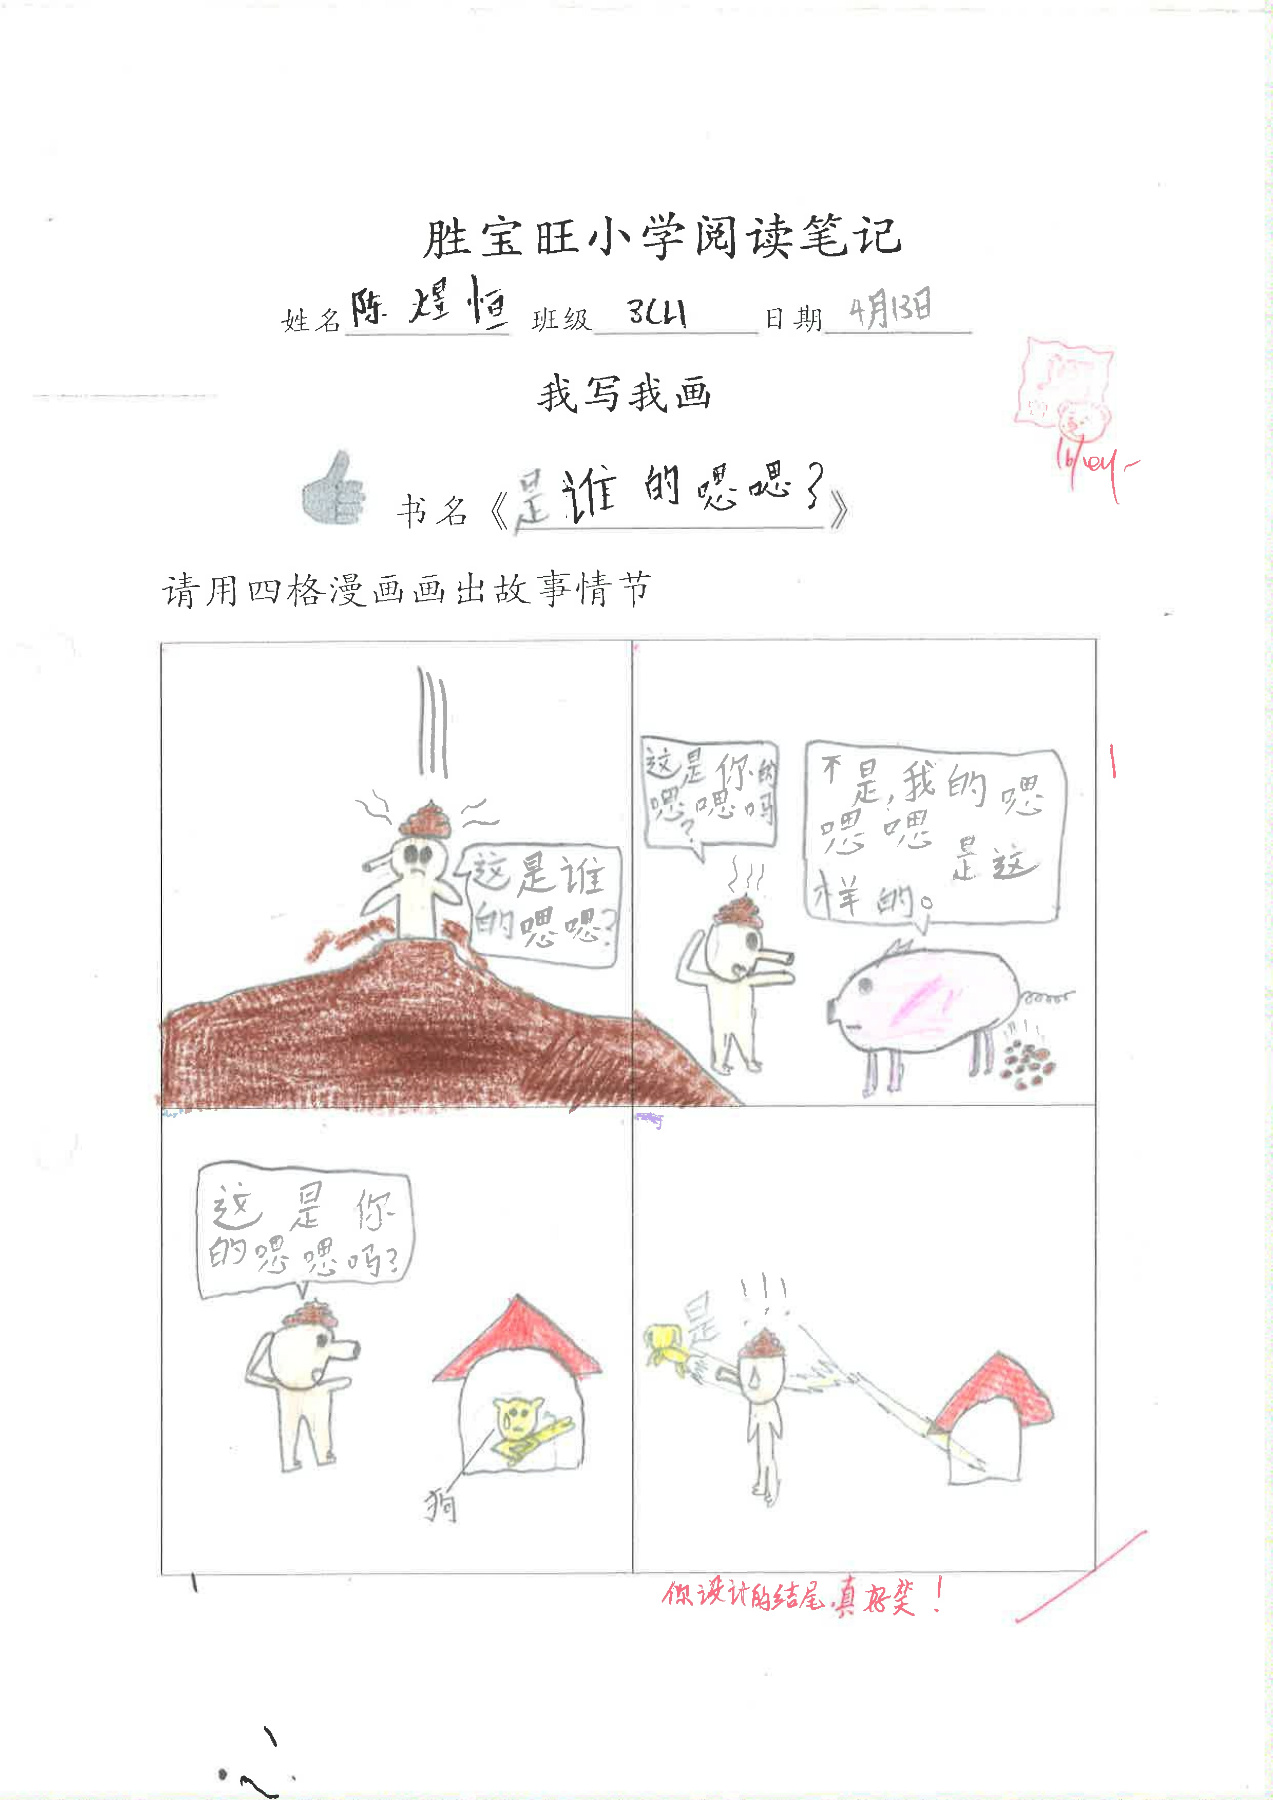 胜宝旺小学阅读笔记
姓名 陈煜恒 班级 3C4 日期 4月13日
我写我画
书名《是谁的嗯嗯？》
请用四格漫画画出故事情节
这是谁
的嗯嗯？
这是你的
嗯嗯吗
？
不是，我的嗯
嗯嗯是这
样的。
这是你
的嗯嗯吗？
狗
是
你设计的结尾真好笑！